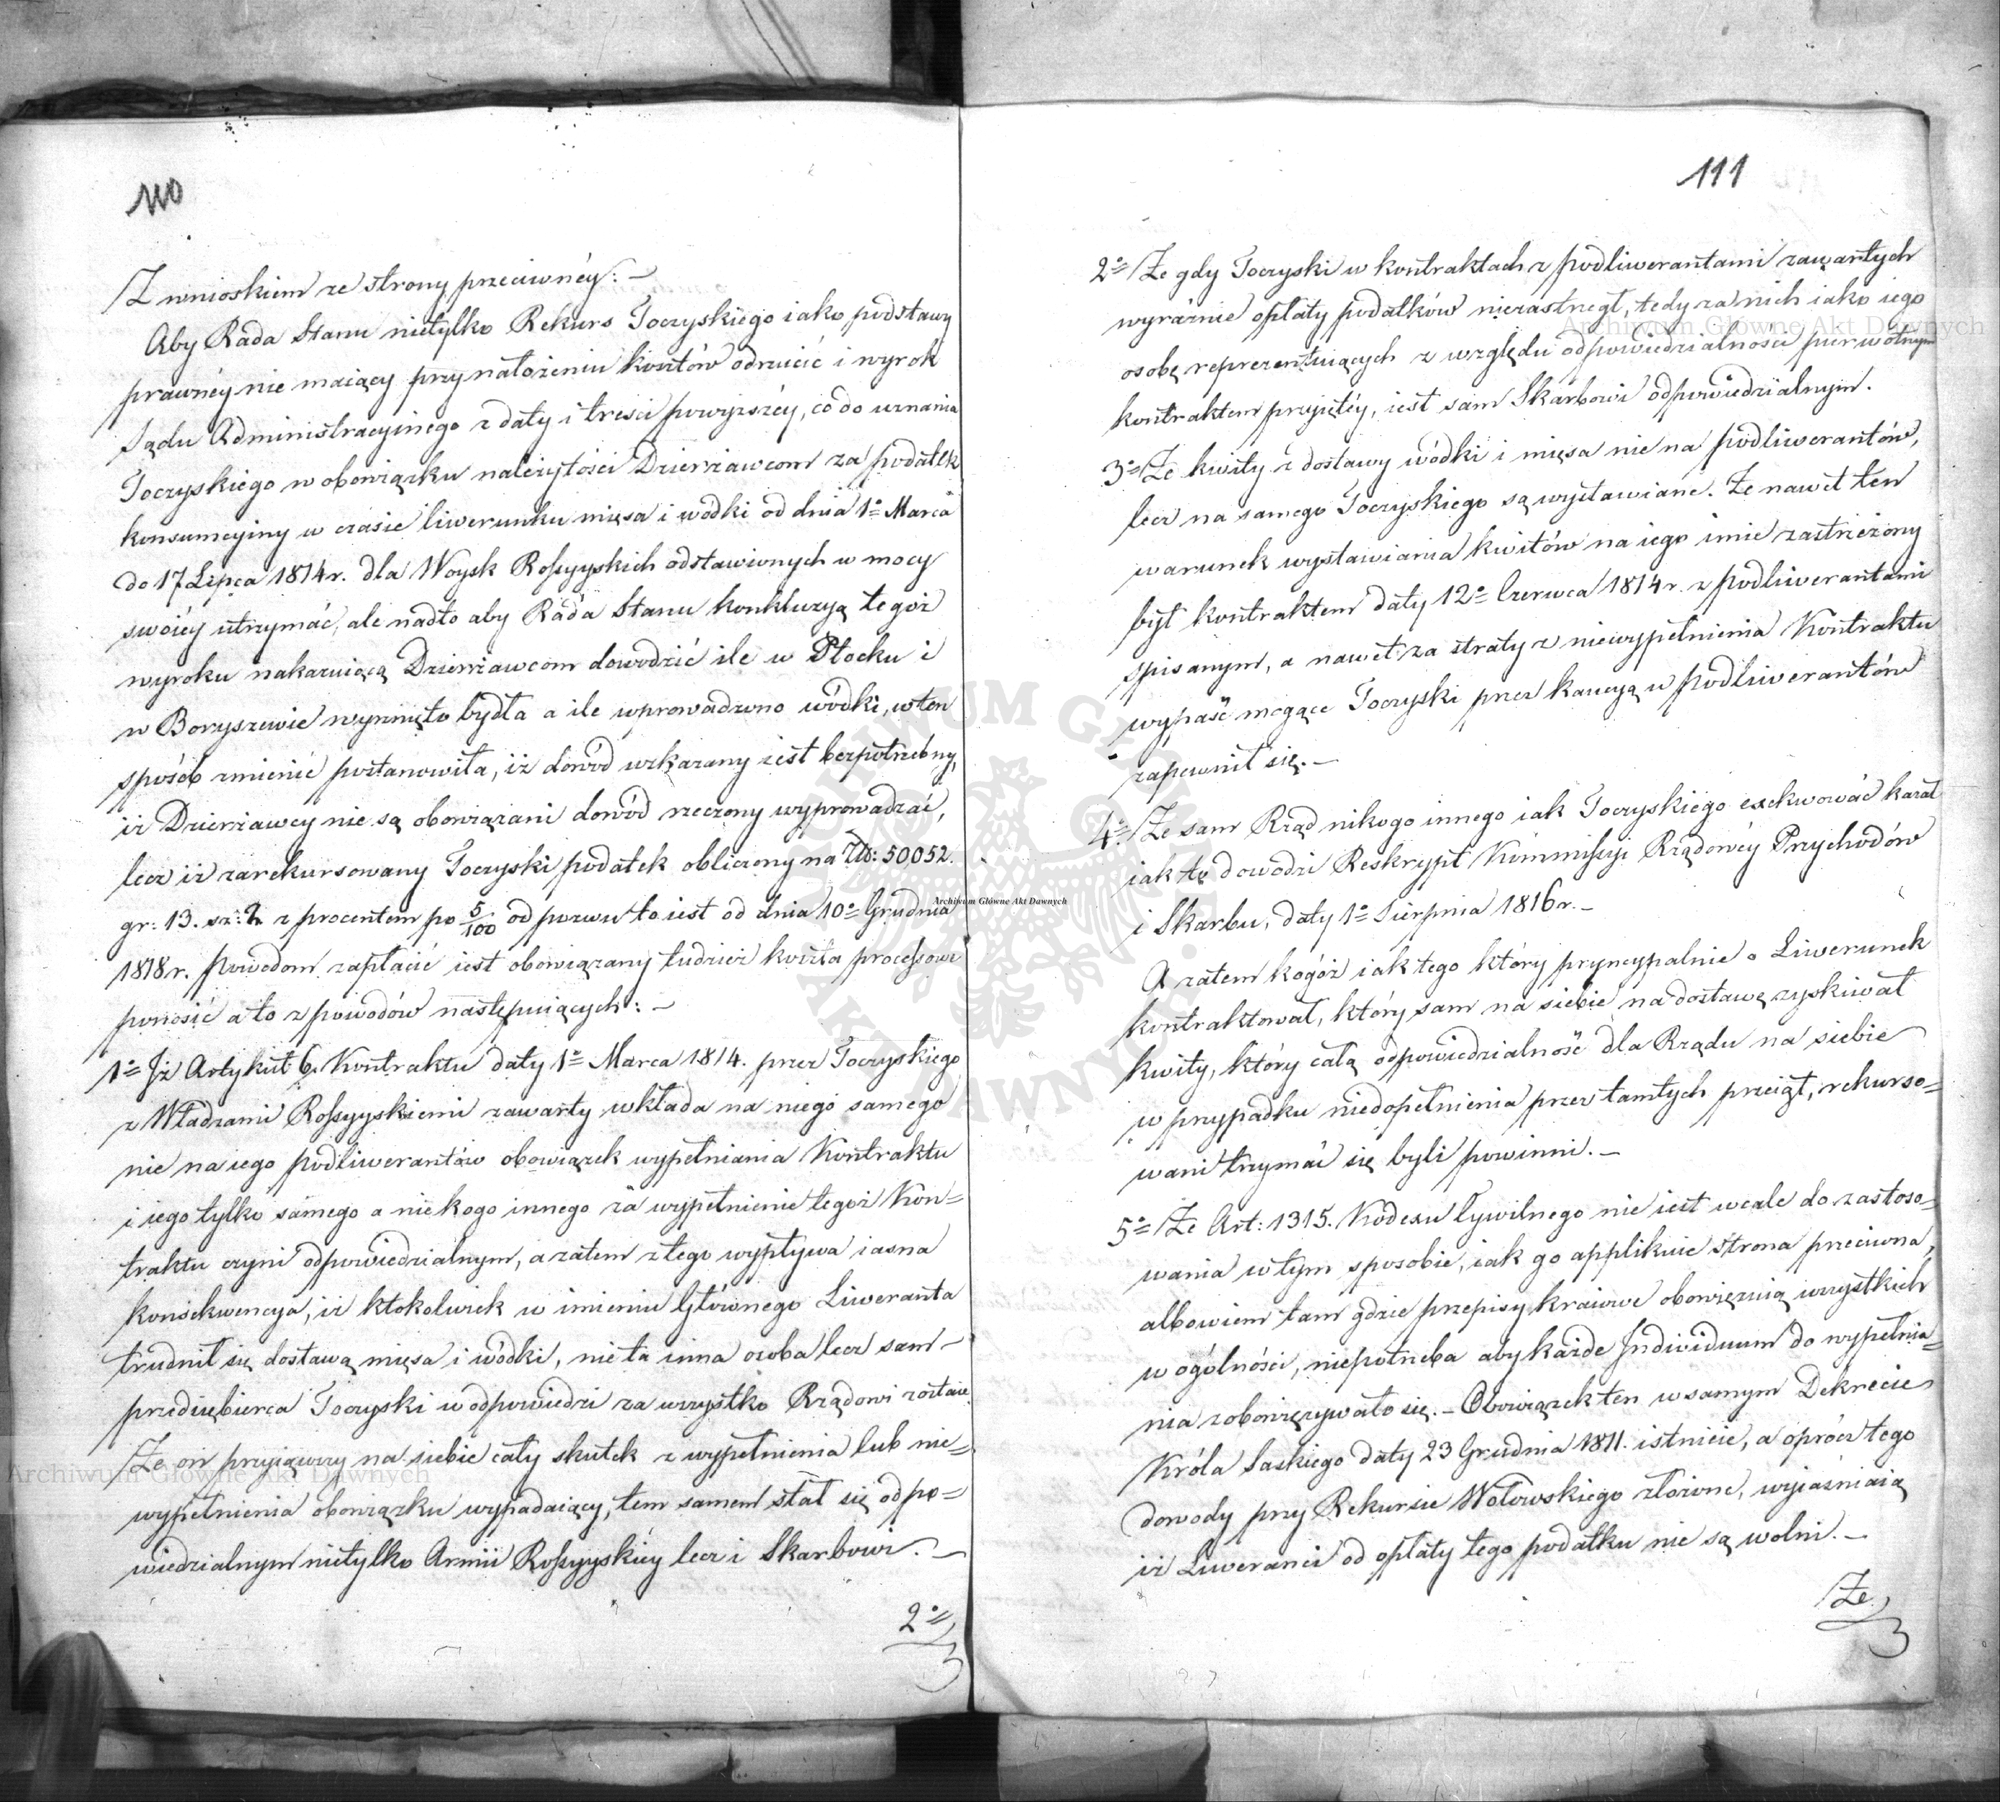 110
Z wnioskiem ze strony przeciwnéy: —
Aby Rada Stanu nietylko Rekurs Toczyskiego iako podstawy
prawnéy nie maiący przy nałożeniu kosztów odrzucić i wyrok
Sądu Administracyinego z daty i treści powyższéy, co do uznania
Toczyskiego w obowiązku należytości Dzierżawcom za podatek
konsumcyiny w czasie liwerunku mięsa i wódki od dnia 1º Marca
do 17 Lipca 1814 r. dla Woysk Rossyyskich odstawionych w mocy
swóiéy utrzymać, ale nadto aby Rada Stanu konkluzyą tegoż
wyroku nakazuiącą Dzierżawcom dowodzić ile w Płocku i
w Boryszewie wyrznięto bydła a ile wprowadzono wódki, w ten
sposób zmienić postanowiła, iż dowód wskazany iest bezpotrzebny,
iż Dzierżawcy nie są obowiązani dowód rzeczony wyprowadzać,
lecz iż zarekursowany Toczyski podatek obliczony na Zło: 50052.
gr: 13. sz: 2 z procentem po 5/100 od pozwu to iest od dnia 10º Grudnia
1818 r. powodom zapłacić iest obowiązany tudzież koszta processowe
ponosić a to z powodów następuiących: —
1º Iż Artykuł 6. Kontraktu daty 1º Marca 1814. przez Toczyskiego
z Władzami Rossyyskiemi zawarty wkłada na niego samego
nie na iego podliwerantów obowiązek wypełniania Kontraktu
i iego tylko samego a nie kogo innego za wypełnienie tegoż Kon=
traktu czyni odpowiedzialnym, a zatem z tego wypływa iasna
konsekwencya, iż ktokolwiek w imieniu Głównego Liweranta
trudnił się dostawą mięsa i wódki, nie ta inna osoba lecz sam —
przedsiębierca Toczyski w odpowiedzi za wszystko Rządowi zostaie
Że on przyiąwszy na siebie cały skutek z wypełnienia lub nie=
wypełnienia obowiązku wypadaiący, tem samem stał się odpo=
wiedzialnym nietylko Armii Rossyyskiéy lecz i Skarbowi. —
2º
111
2º Że gdy Toczyski w kontraktach z podliwerantami zawartych
wyraźnie opłaty podatków niezastrzegł, tedy za nich iako iego
osobę reprezentuiących z względu odpowiedzialności pierwotnym
kontraktem przyiętéy, iest sam Skarbowi odpowiedzialnym.
3º Że kwity z dostawy wódki i mięsa nie na podliwerantów,
lecz na samego Toczyskiego są wystawiane. Że nawet ten
warunek wystawiania kwitów na iego imie zastrzeżony
był kontraktem daty 12º Czerwca 1814 r. z podliwerantami
spisanym, a nawet za straty z niewypełnienia Kontraktu
wypaść mogące Toczyski przez kaucyą u podliwerantów
zapewnił się. —
4º Że sam Rząd nikogo innego iak Toczyskiego exekwować kazał
iak to dowodzi Reskrypt Kommissyi Rządowéy Przychodów
i Skarbu, daty 1º Sierpnia 1816 r. —
A zatem kogóż iak tego który pryncypalnie o Liwerunek
kontraktował, który sam na siebie na dostawę zyskiwał
kwity, który całą odpowiedzialność dla Rządu na siebie
w przypadku niedopełnienia przez tamtych przeiął, rekurso=
wani trzymać się byli powinni. —
5º Że Art: 1315. Kodexu Cywilnego nie iest wcale do zastoso=
wania w tym sposobie, iak go applikuie strona przeciwna,
albowiem tam gdzie przepisy kraiowe obowięzuią wszystkich
w ogólności, niepotrzeba aby każde Individuum do wypełnia=
nia zobowięzywało się. — Obowiązek ten w samym Dekrecie
Króla Saskiego daty 23 Grudnia 1811. istnieie, a oprócz tego
dowody przy Rekursie Wołowskiego złożone, wyiaśniaią
iż Liweranci od opłaty tego podatku nie są wolni. —
Że
Archiwum Główne Akt Dawnych
Archiwum Główne Akt Dawnych
Archiwum Główne Akt Dawnych
ARCHIWUM GŁÓWNE AKT DAWNYCH